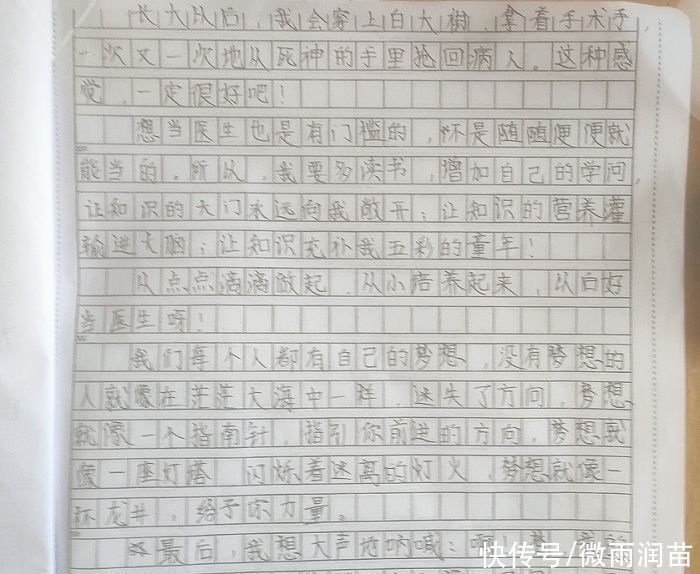 长大以后,我会穿上白大褂,拿着手术手,
一次又一次地从死神的手里抢回病人。这种感
觉,一定很好吧!
想当医生也是有门槛的,不是随随便便就
能当的。所以,我要多读书,增加自己的学问,
让知识的大门永远向我敞开;让知识的营养灌
输进大脑;让知识充补我五彩的童年!
从点点滴滴做起,从小培养起来,以后好
当医生呀!
我们每个人都有自己的梦想,没有梦想的
人就像在茫茫大海中一样,迷失了方向,梦想
就像一个指南针,指引你前进的方向,梦想就
像一座灯塔 闪烁着迷离的灯火,梦想就像一
杯龙井,给予你力量。
最后,我想大声地呐喊:
快传号/微雨润苗